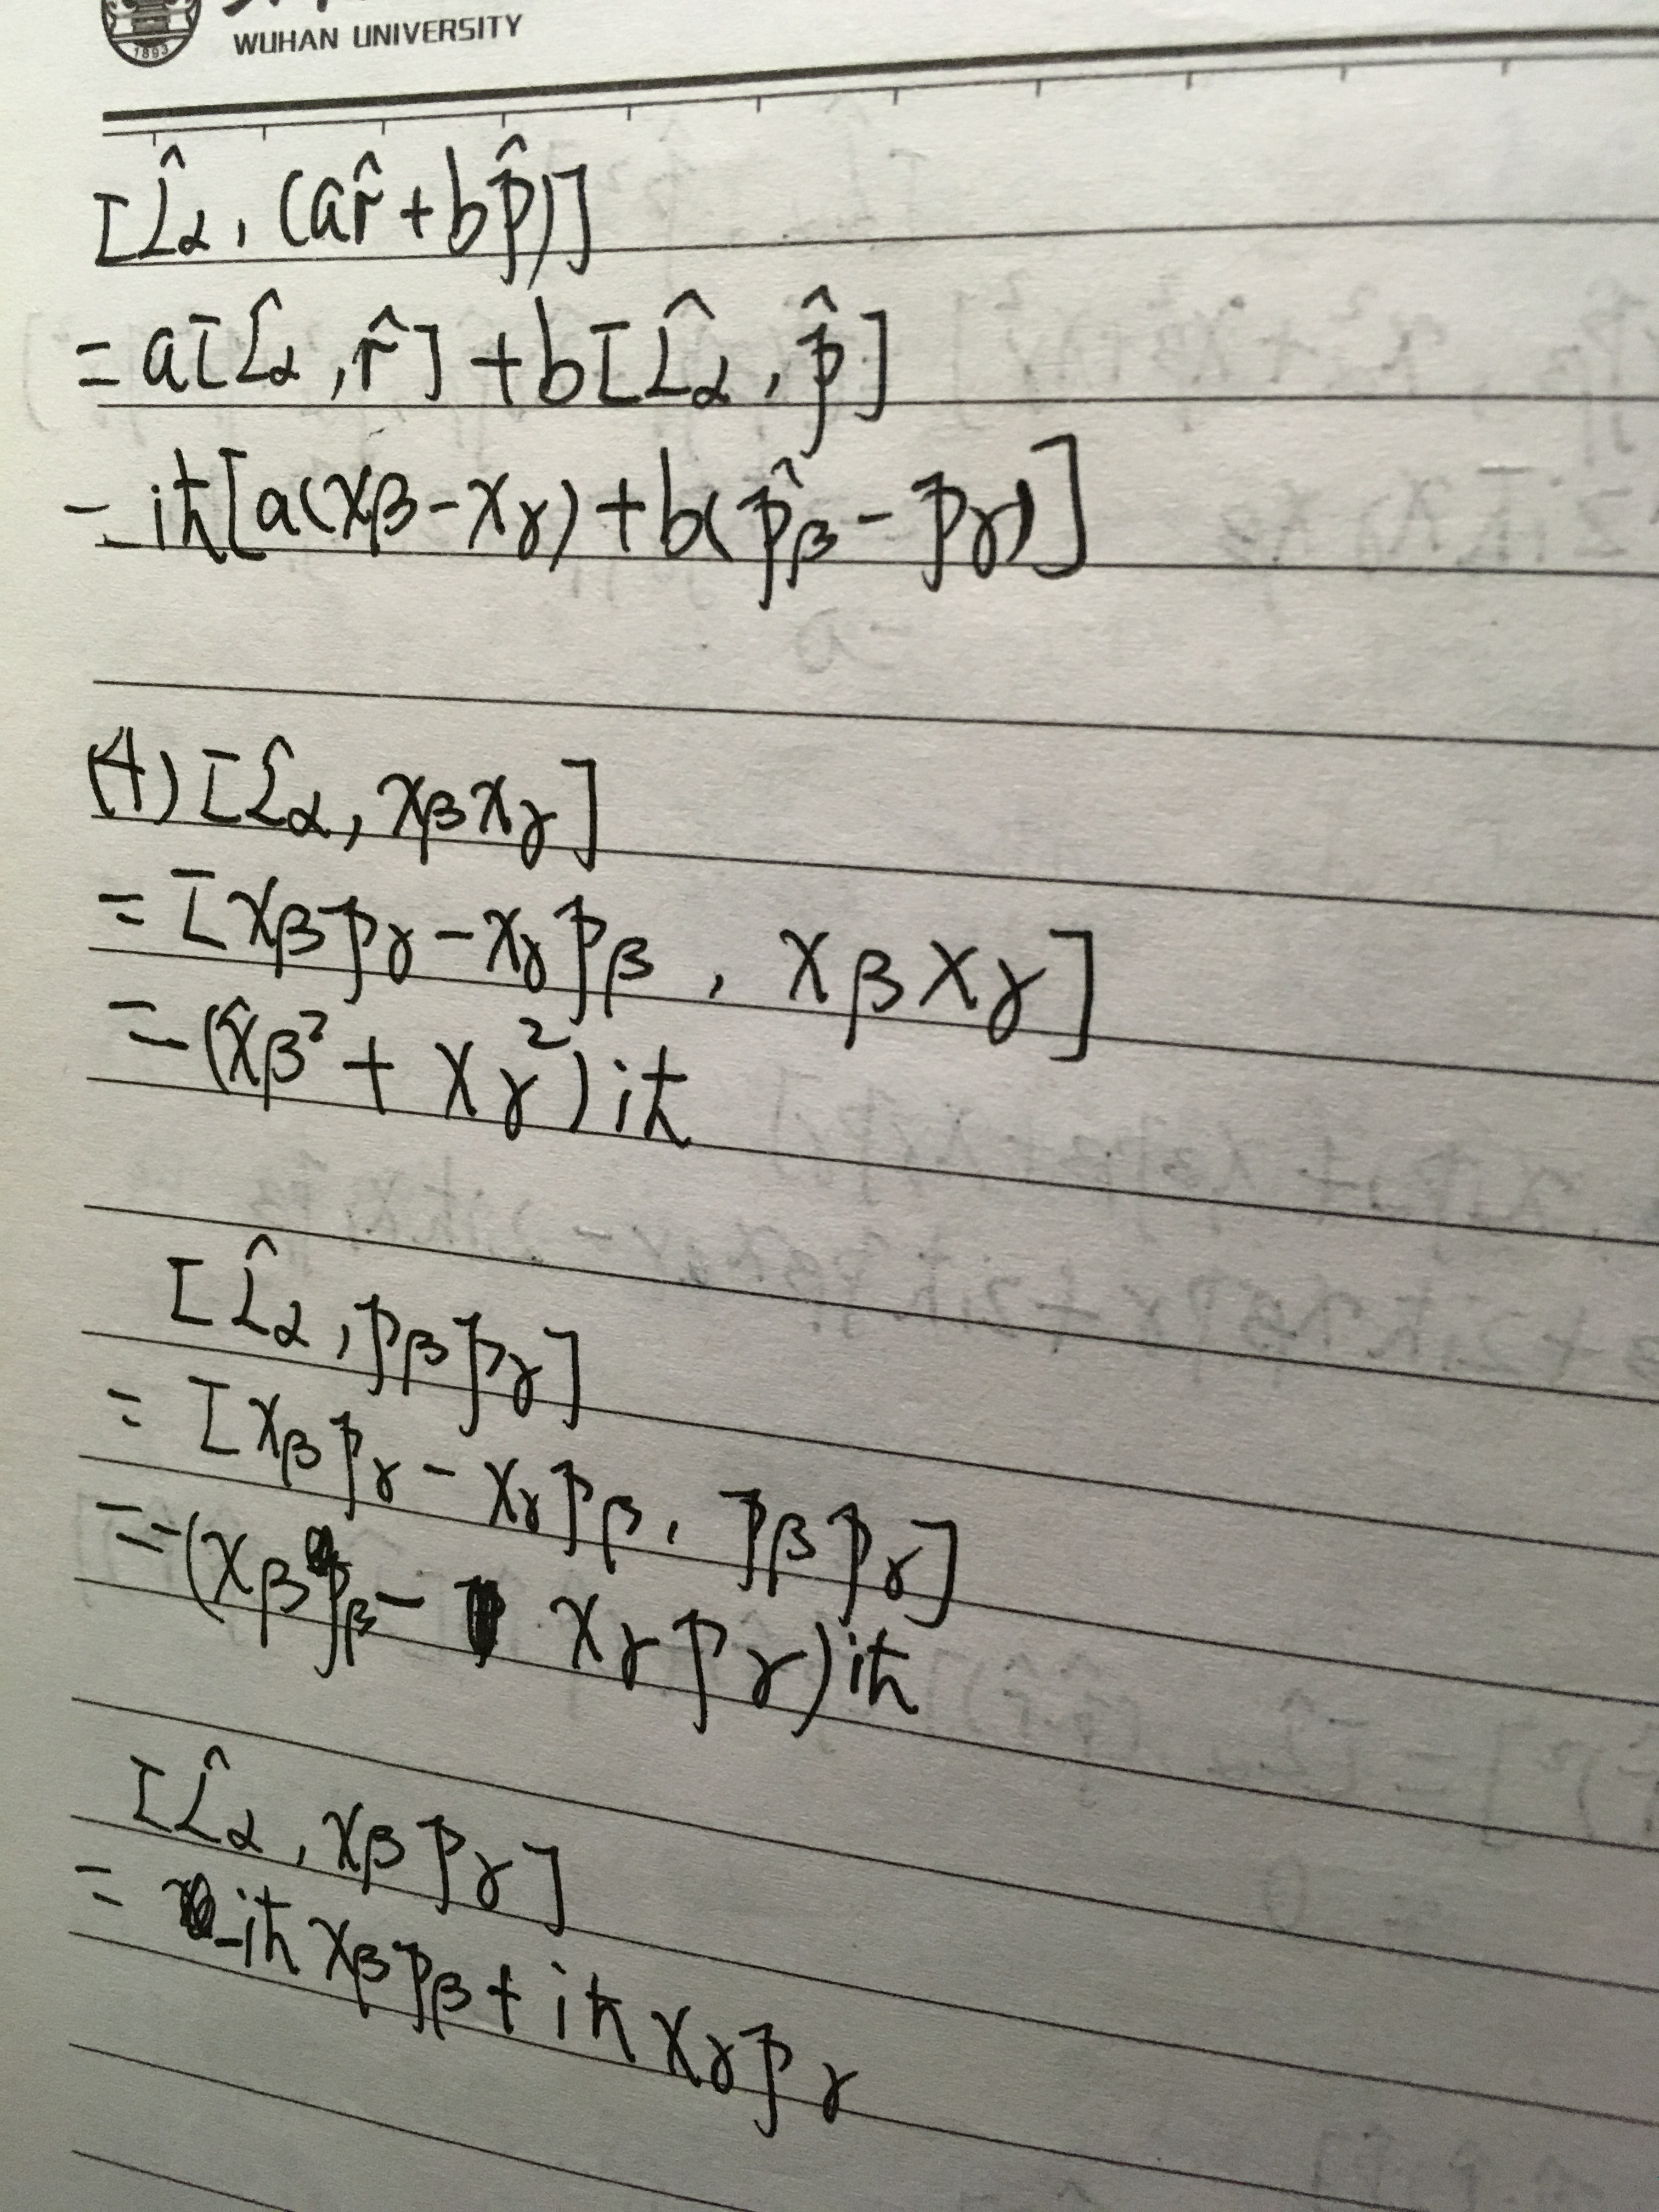 1893
WUHAN UNIVERSITY
[L̂α, (ar̂+bp̂)]
=a[L̂α,r̂]+b[L̂α,p̂]
=iħ[a(xβ-xγ)+b(p̂β-pγ)]
(4)[L̂α,xβxγ]
=[xβpγ-xγpβ,xβxγ]
=-(x̂β²+xγ²)iħ
[L̂α,pβpγ]
=[xβpγ-xγpβ,pβpγ]
=-(xβpβ-xγpγ)iħ
[L̂α,xβpγ]
=-iħxβpβ+iħxγpγ